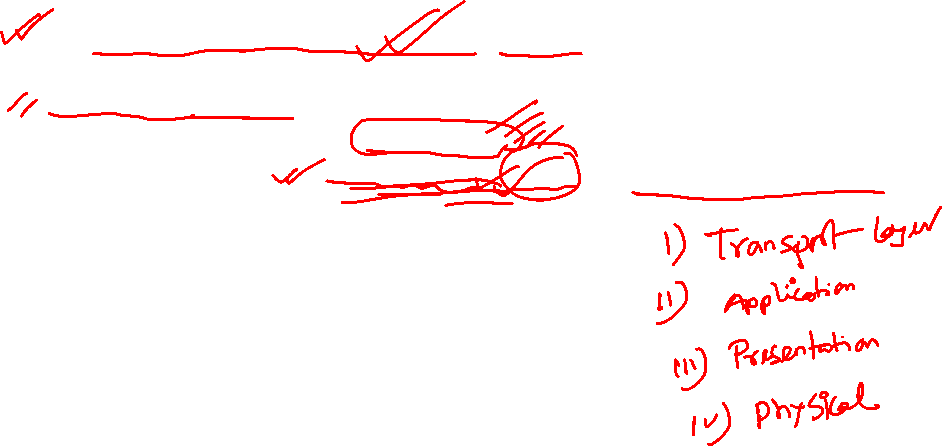 I) Transport Layer
II) Application
III) Presentation
IV) Physical